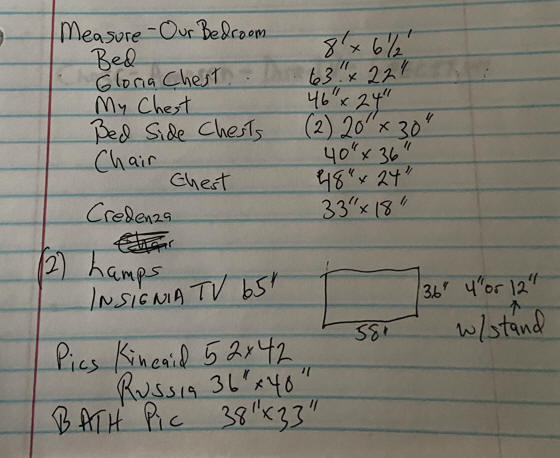 Measure - Our Bedroom
Bed 8' x 6 1/2'
Gloria Chest 63" x 22"
My Chest 46" x 24"
Bed Side Chests (2) 20" x 30"
Chair 40" x 36"
Chest 48" x 24"
Credenza 33" x 18"
(2) Lamps
INSIGNIA TV 65" 36" 4" or 12"
58" w/stand
Pics Kincaid 52x42
Russia 36" x 40"
BATH Pic 38" x 33"